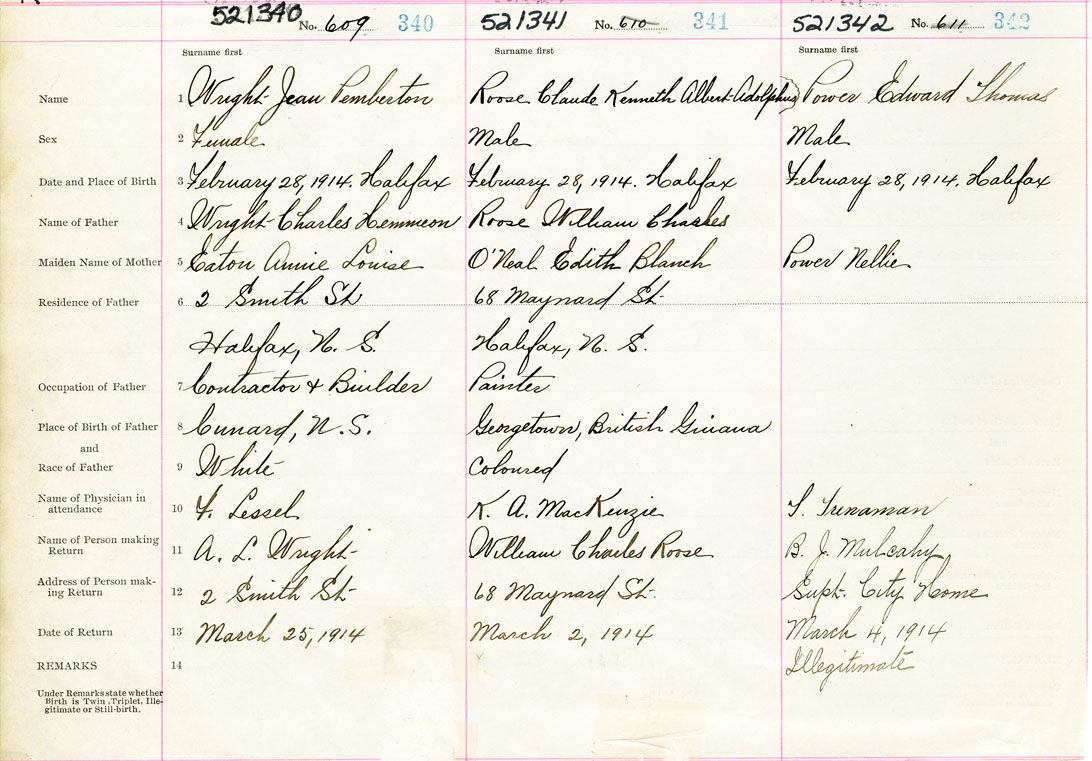 521340 No. 609 340 521341 No. 610 341 521342 No. 611 342
Surname first Surname first Surname first
Name 1 Wright Jean Pemberton Roose Claude Kenneth Albert Adolphus Power Edward Thomas
Sex 2 Female Male Male
Date and Place of Birth 3 February 28, 1914. Halifax February 28, 1914. Halifax February 28, 1914. Halifax
Name of Father 4 Wright Charles Hemmeon Roose William Charles
Maiden Name of Mother 5 Eaton Annie Louise O'Neal Edith Blanch Power Nellie
Residence of Father 6 2 Smith St 68 Maynard St
Halifax, N. S. Halifax, N. S.
Occupation of Father 7 Contractor & Builder Painter
Place of Birth of Father 8 Cunard, N.S. Georgetown, British Guiana
and
Race of Father 9 White Coloured
Name of Physician in attendance 10 F. Lessel K. A. MacKenzie Trenaman
Name of Person making Return 11 A. L. Wright William Charles Roose B. J. Mulcahy
Address of Person mak-
ing Return 12 2 Smith St 68 Maynard St. Supt. City Home
Date of Return 13 March 25, 1914 March 2, 1914 March 4, 1914
REMARKS 14 Illegitimate
Under Remarks state whether
Birth is Twin, Triplet, Ille-
gitimate or Still-birth.